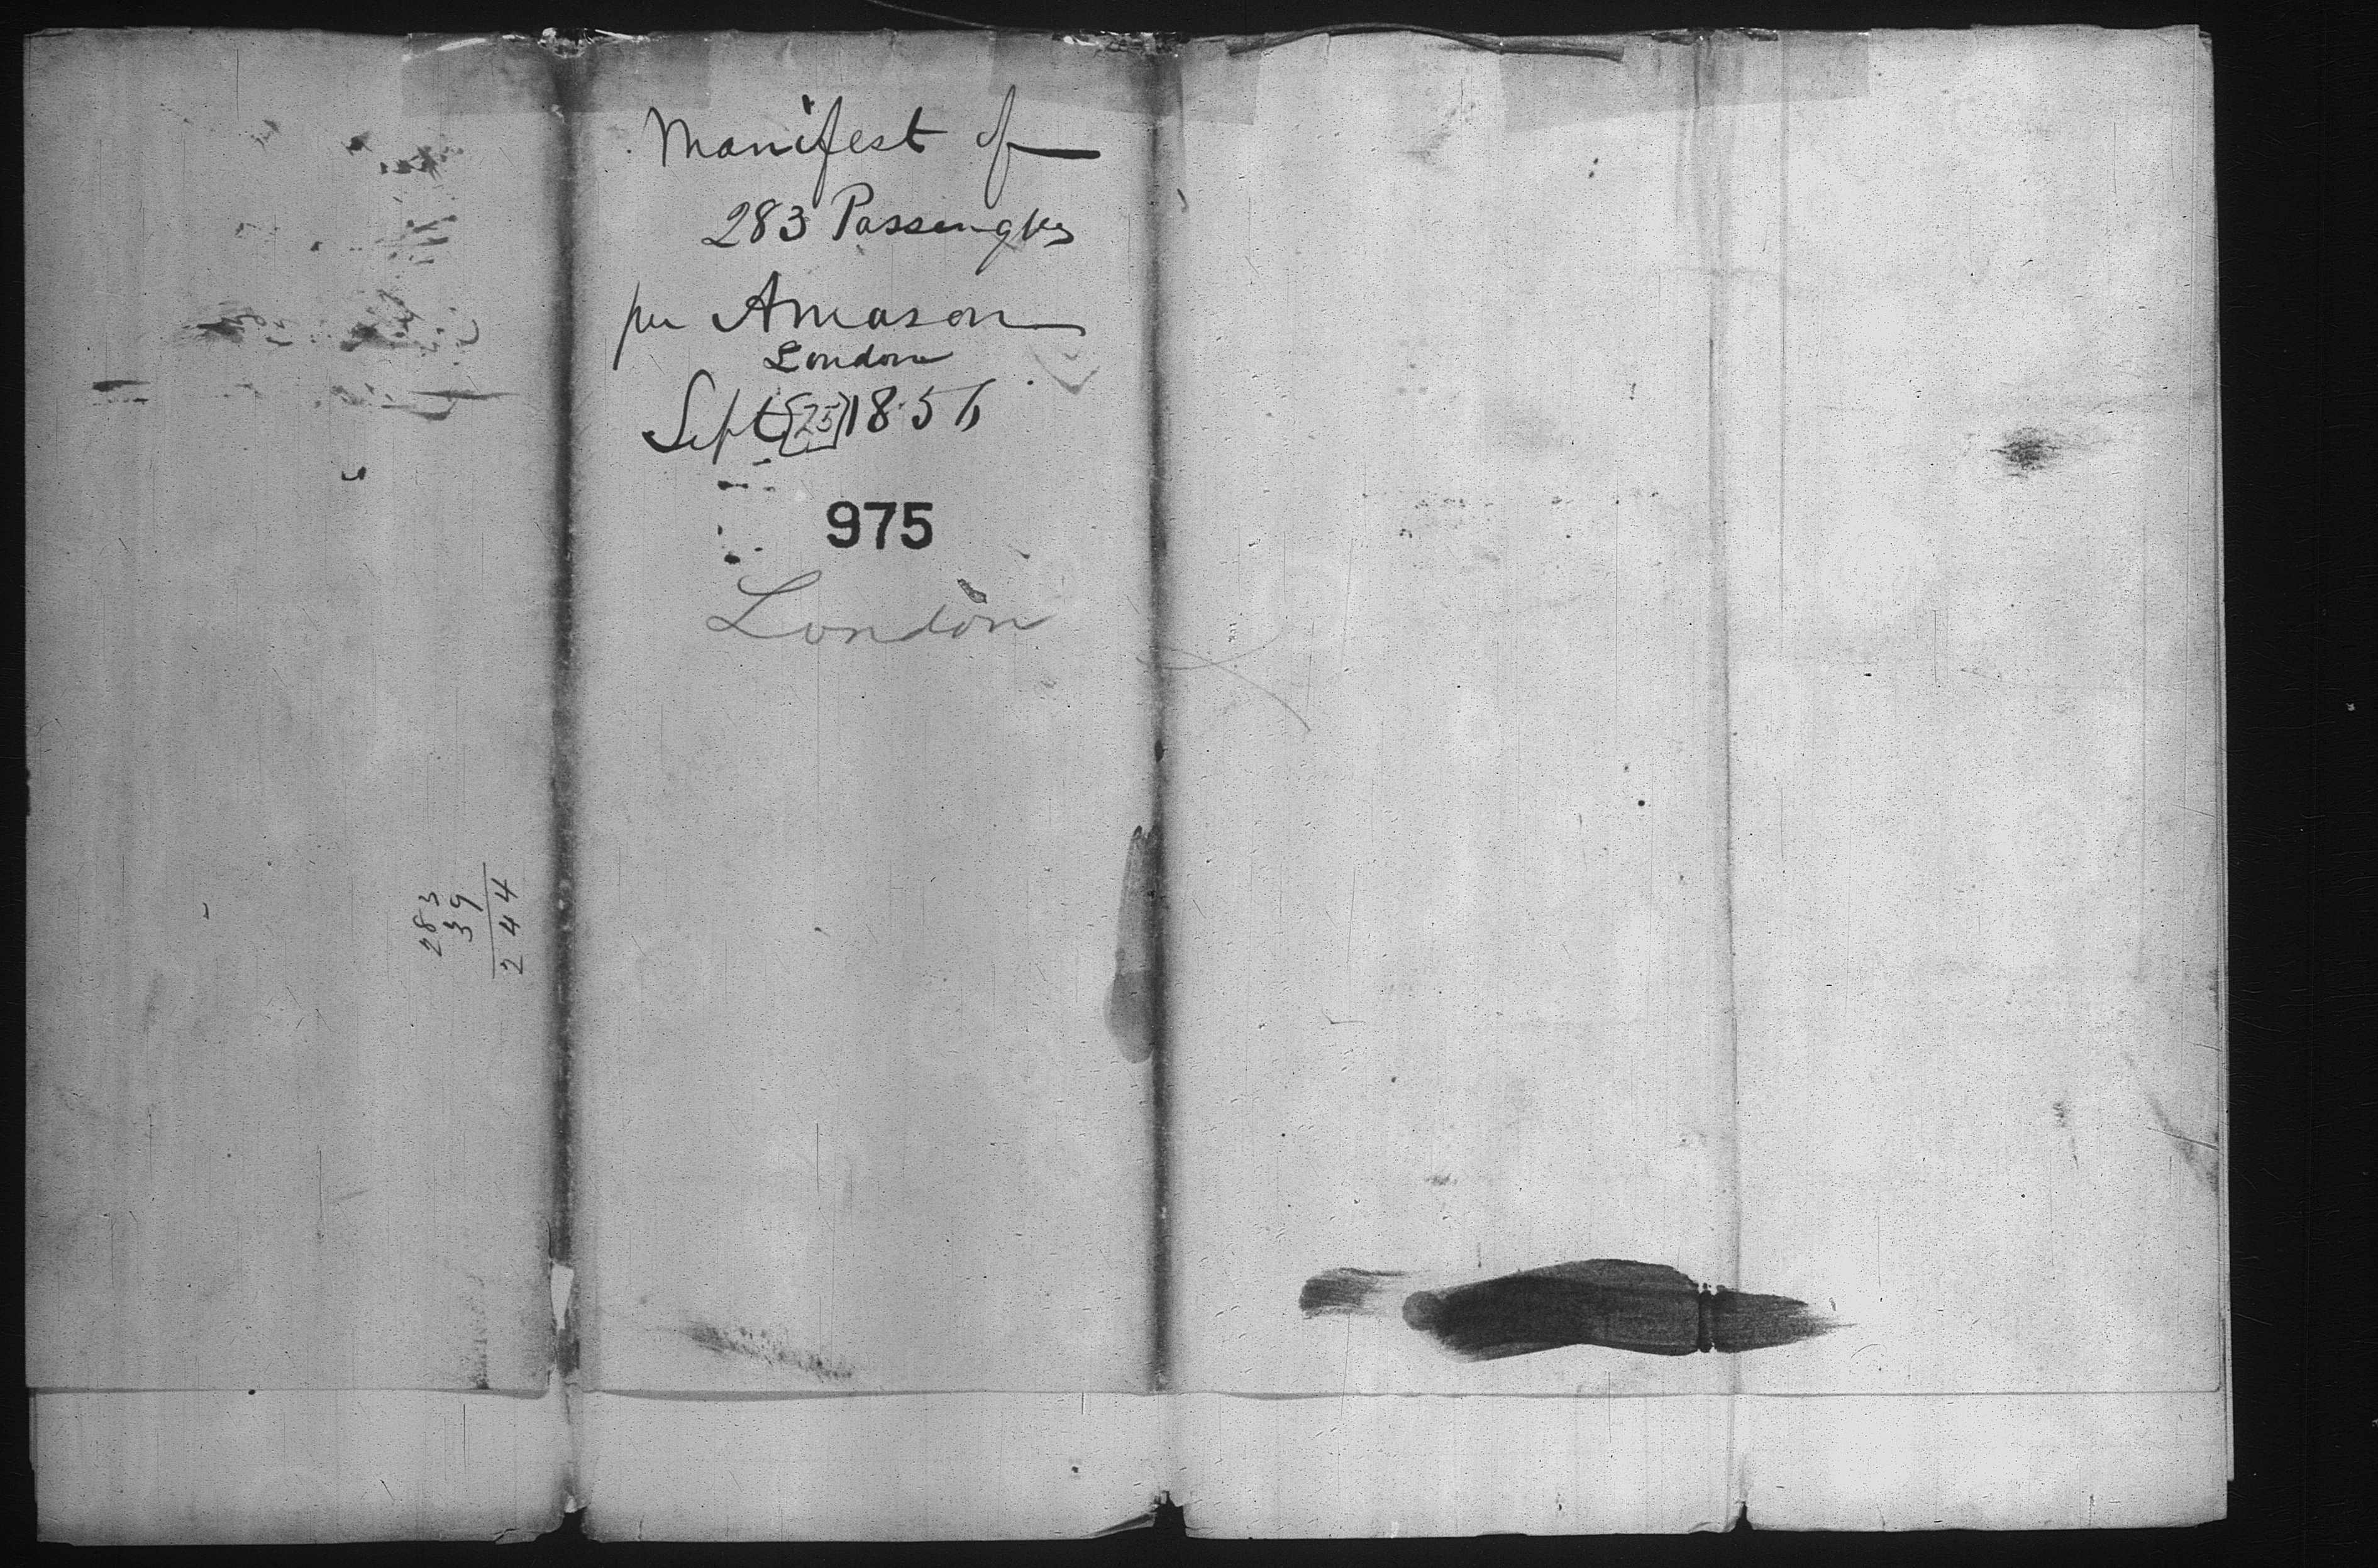 Manifest of
283 Passengers
per Amason
London
Sept 25 1856
975
London
283
39
244